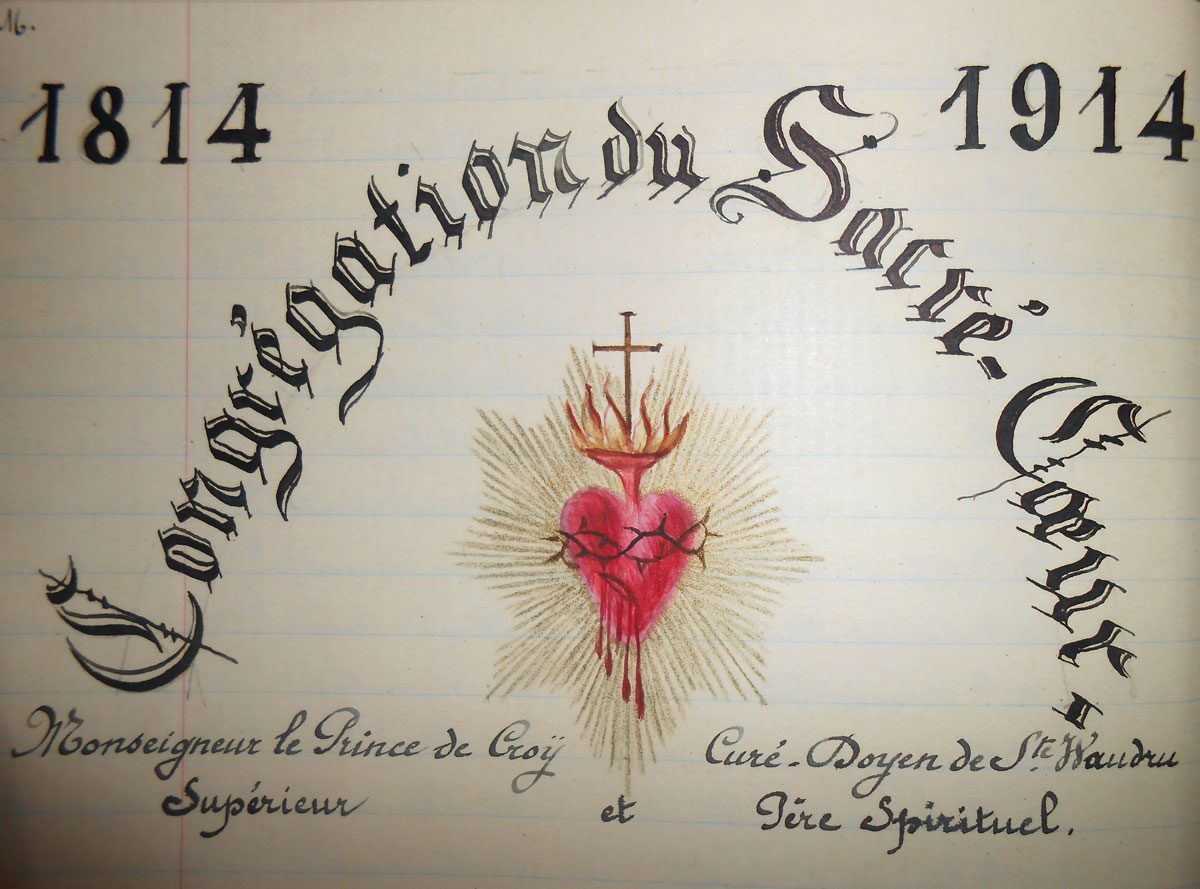 16.
1814 1914
Congrégation du Sacré-Cœur.
Monseigneur le Prince de Croÿ Curé-Doyen de Ste Waudru
Supérieur et Père Spirituel.